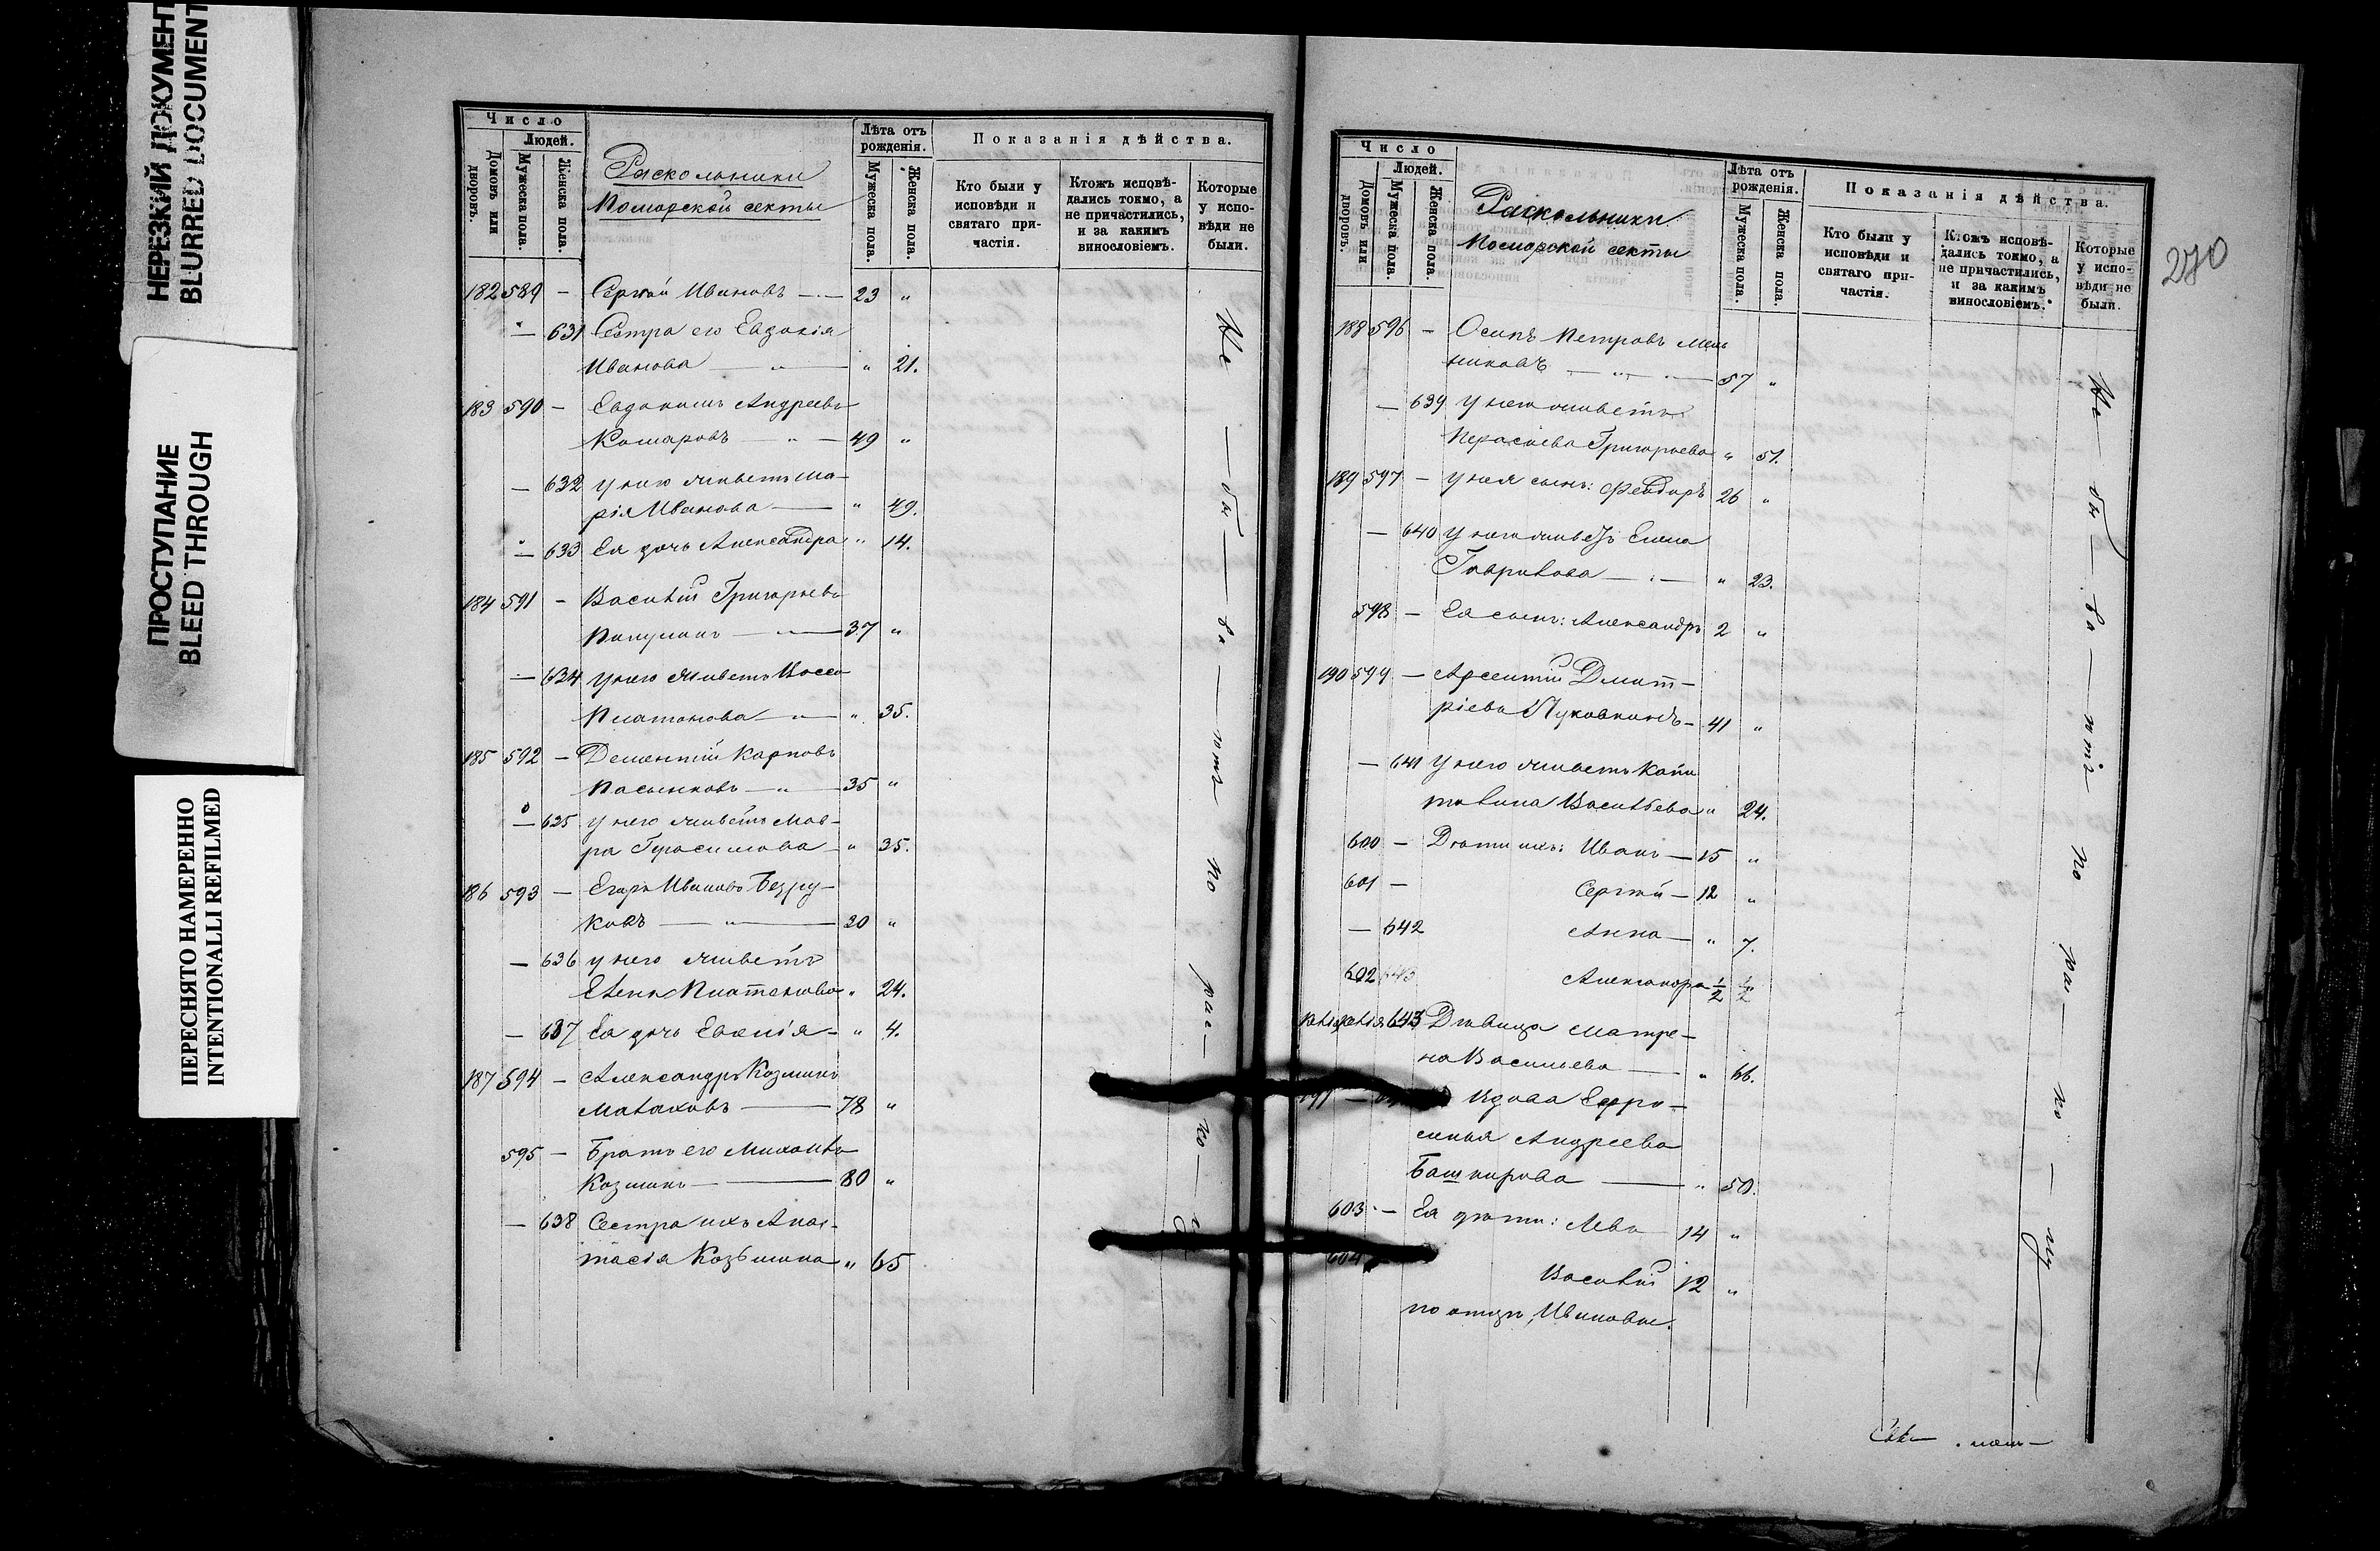 НЕРЕЗКИЙ ДОКУМЕНТ
BLURRED DOCUMENT
ПРОСТУПАНИЕ
BLEED THROUGH
ПЕРЕСНЯТО НАМЕРЕННО
INTENTIONALLI REFILMED
Число
Людей.
Домовъ или дворовъ.
Мужеска пола.
Женска пола.
Раскольники
Поморской секты
Лѣта отъ рожденія.
Мужеска пола.
Женска пола.
Показанія дѣйства.
Кто были у исповѣди и святаго причастія.
Ктожъ исповѣдались токмо, а не причастились, и за какимъ винословіемъ.
Которые у исповѣди не были.
182 589 – Сергѣй Ивановъ — 23 „
— 631 Сестра его Евдокія
Иванова — „ 21.
183 590 – Евдокимъ Андреевъ
Комаровъ — „ — 49 „
— 632 у него живетъ Ма-
рія Иванова — „ 49.
— 633 Ея дочь Александра „ 14.
184 591 – Василій Григорьевъ
— 37 „
— 634 у него живетъ
Платонова — „ 35.
185 592 – Дементій Карповъ
Пасынковъ — „ 35 „
— 635 у него живетъ Мав-
ра Герасимова — „ 35.
186 593 – Егоръ Ивановъ Безру-
ковъ — „ — 30 „
— 636 у него живетъ
Елена Платонова „ 24.
— 637 Ея дочь Евѳимія – „ 4.
187 594 – Александръ Козминъ
Малаховъ — 78 „
595 – Братъ его Михаилъ
Козминъ — 80 „
— 638 Сестра ихъ Анас-
тасія Козьмина „ 65
Не — бы — ва — ютъ по рас — ко —
Число
Людей.
Домовъ или дворовъ.
Мужеска пола.
Женска пола.
Раскольники
Поморской секты
Лѣта отъ рожденія.
Мужеска пола.
Женска пола.
Показанія дѣйства.
Кто были у исповѣди и святаго причастія.
Ктожъ исповѣдались токмо, а не причастились, и за какимъ винословіемъ.
Которые у исповѣди не были.
270
188 596 – Осипъ Петровъ Мель
никовъ — „ — 57 „
— 639 У него живетъ
Парасковья Григорьева „ 51.
189 597 – у нея сынъ: Ѳеодоръ 26 „
— 640 У него живетъ Елена
Гаврилова — „ 23.
598 – Ея сынъ: Александръ 2 „
190 599 – Арсентій Дмит-
ріевъ – 41 „
— 641 У него живетъ Капи
толина Васильева „ 24.
600 – Дѣти ихъ: Иванъ — 15 „
601 – Сергѣй — 12 „
— 642 Анна — „ 7.
602 643 Александра ½ ½
643 Дѣвица Матре-
на Васильева — „ 66.
191 — Вдова Евфро-
синья Андреева
Башкирова — „ 50.
603 – Ея дѣти: Левъ 14 „
604 Василій 12 „
по отцѣ, Ивановы.
Не — бы — ва — ютъ по рас — ко — лу